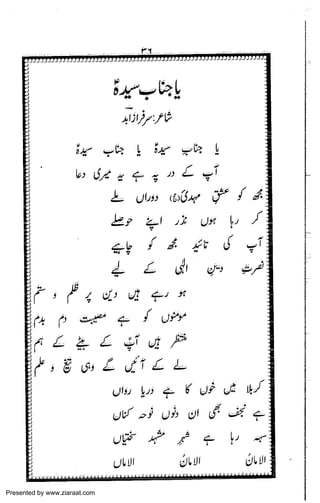 ۳۶
یا جناب سیدہؑ
شاعر: سرفراز ابد
یا جنابِ سیدہؑ یا جنابِ سیدہؑ
آپ کے در پہ ہے یہ میری دعا
مجھ کو عشقِ مہدیؑ (عج) دوراں ملے
کر رہا ہوں نذر اپنے حوصلے
آپ کی تائید مجھ کو چاہیے
نصرتِ دینِ الٰہی کے لیے
ہو رہے ہیں دین پر ظلم و ستم
مومنوں کو ہے مصیبت دم بدم
منتظر ہیں آپؑ کے بیٹے کے ہم
لے کے آئیں گے وہی تیغ و علم
کربلا میں خوں کا ہے دریا رواں
ہے نجف بھی ان دنوں نوحہ کناں
سہہ رہا ہے شہرِ مشہد سختیاں
الاماںُ الاماںُ الاماں
Presented by www.ziaraat.com